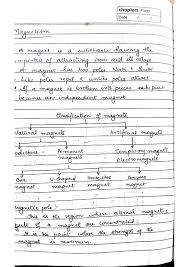 chapters: Page
Date
Magnetism
A magnet is a substance having the
properties of attracting iron and its alloys
A magnet has two poles North & South
Like poles repel & unlike poles attract
If a magnet is broken into pieces each piece
becomes an independent magnet
Classification of magnets
Natural magnets Artificial magnets
Permanent Temporary magnets
magnet Electromagnets
Bar V-shaped
magnet magnet magnet magnet
Magnetic pole:
This is the regions where external magnetic
field of a magnet are concentrated
It is the point where the strength of the
magnet is maximum.